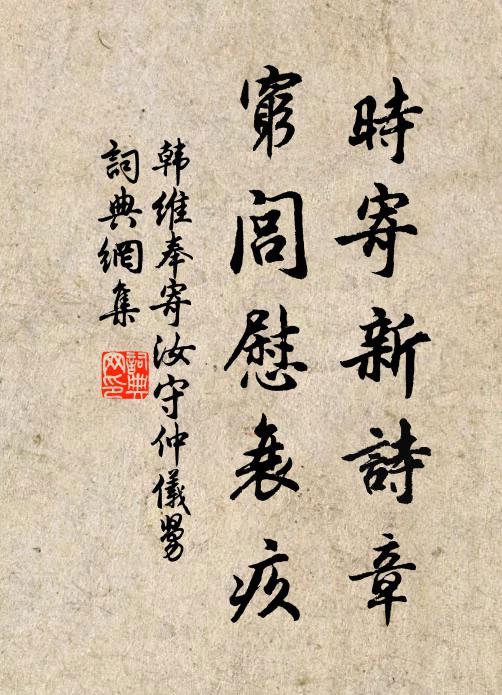 時寄新詩章
窮閻慰衰疚
韩維奉寄汝守仲儀舅
詞典網集
詞典网印